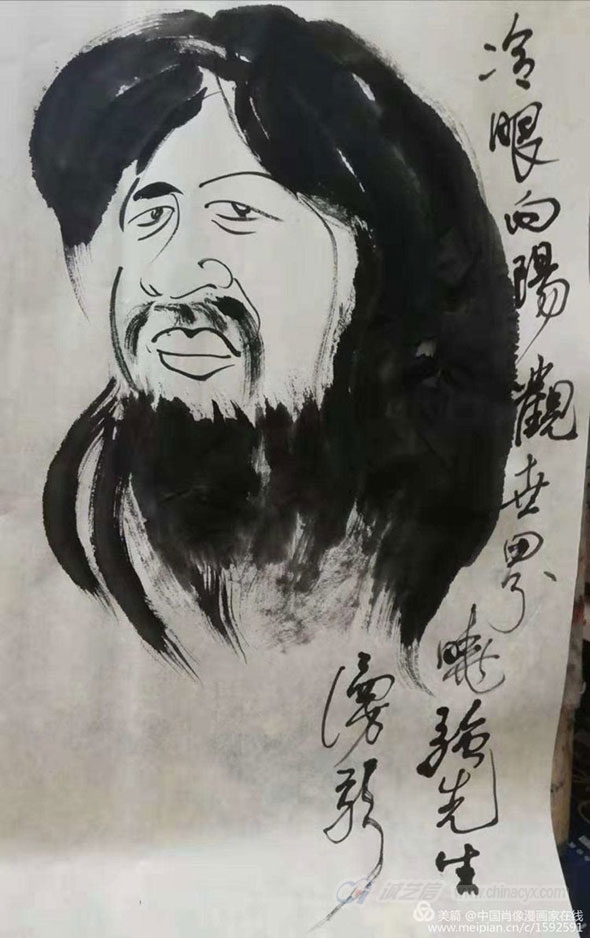 冷眼向陽觀世界
曉強先生
漫影
诚艺信 www.chinacyx.com
美篇 @中国肖像漫画家在线
www.meipian.cn/c/1592591